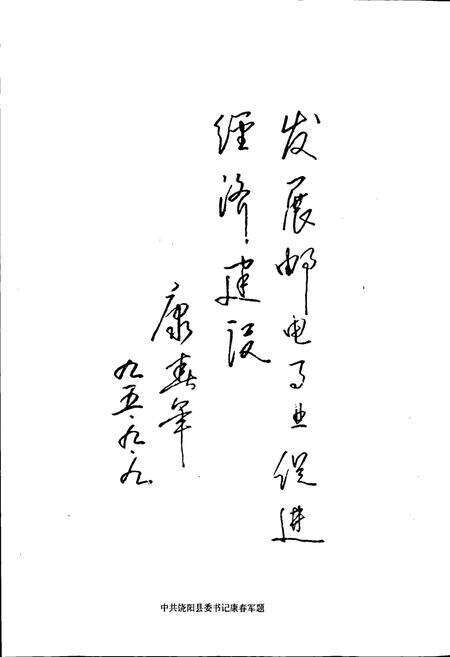 发展邮电事业促进
经济建设
康春军
九五.九.九
中共饶阳县委书记康春军题